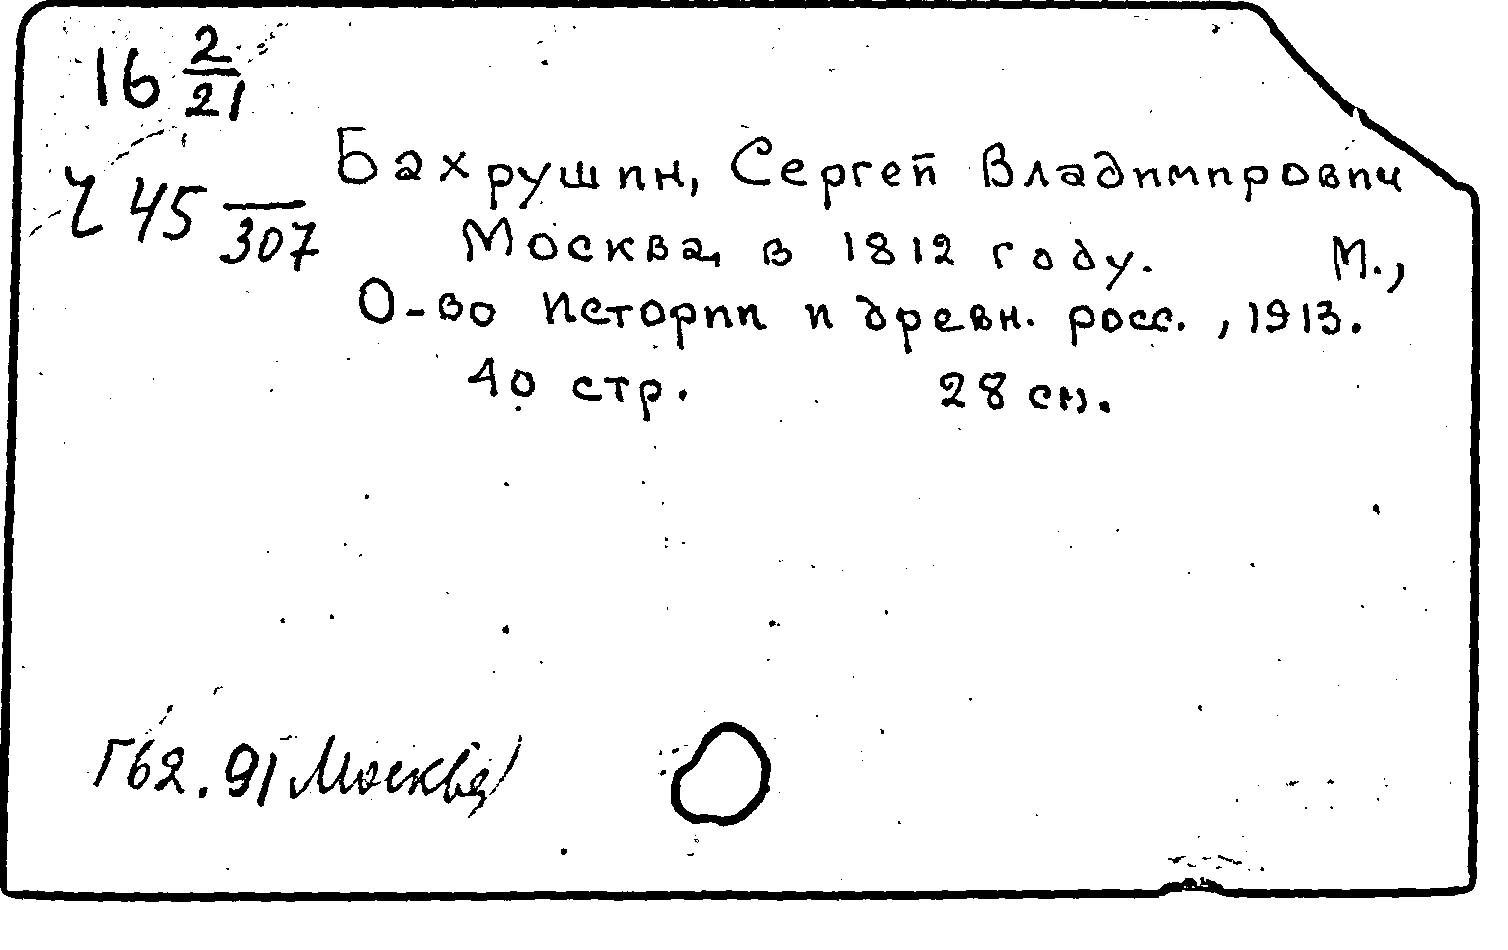 16 2/21
Бахрушин, Сергей Владимирович
Ч 45 —/307
Москва в 1812 году. М.,
О-во истории и древн. росс., 1913.
40 стр. 28 см.
Г62.91 Москва